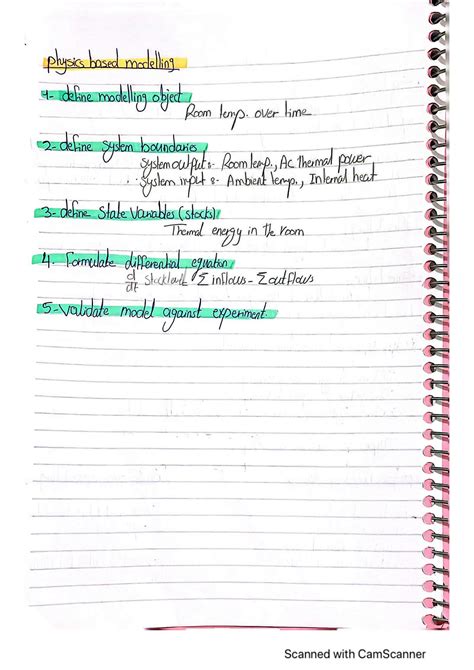 physics based modelling
1- define modelling object
Room temp. over time
2- define System boundaries
System output :- Room temp., Ac thermal power
System input :- Ambient temp., Internal heat
3- define State Variables (stocks)
Thermal energy in the room
4. Formulate differential equation
d/dt Σ inflows - Σ outflows
5- Validate model against experiment.
Scanned with CamScanner